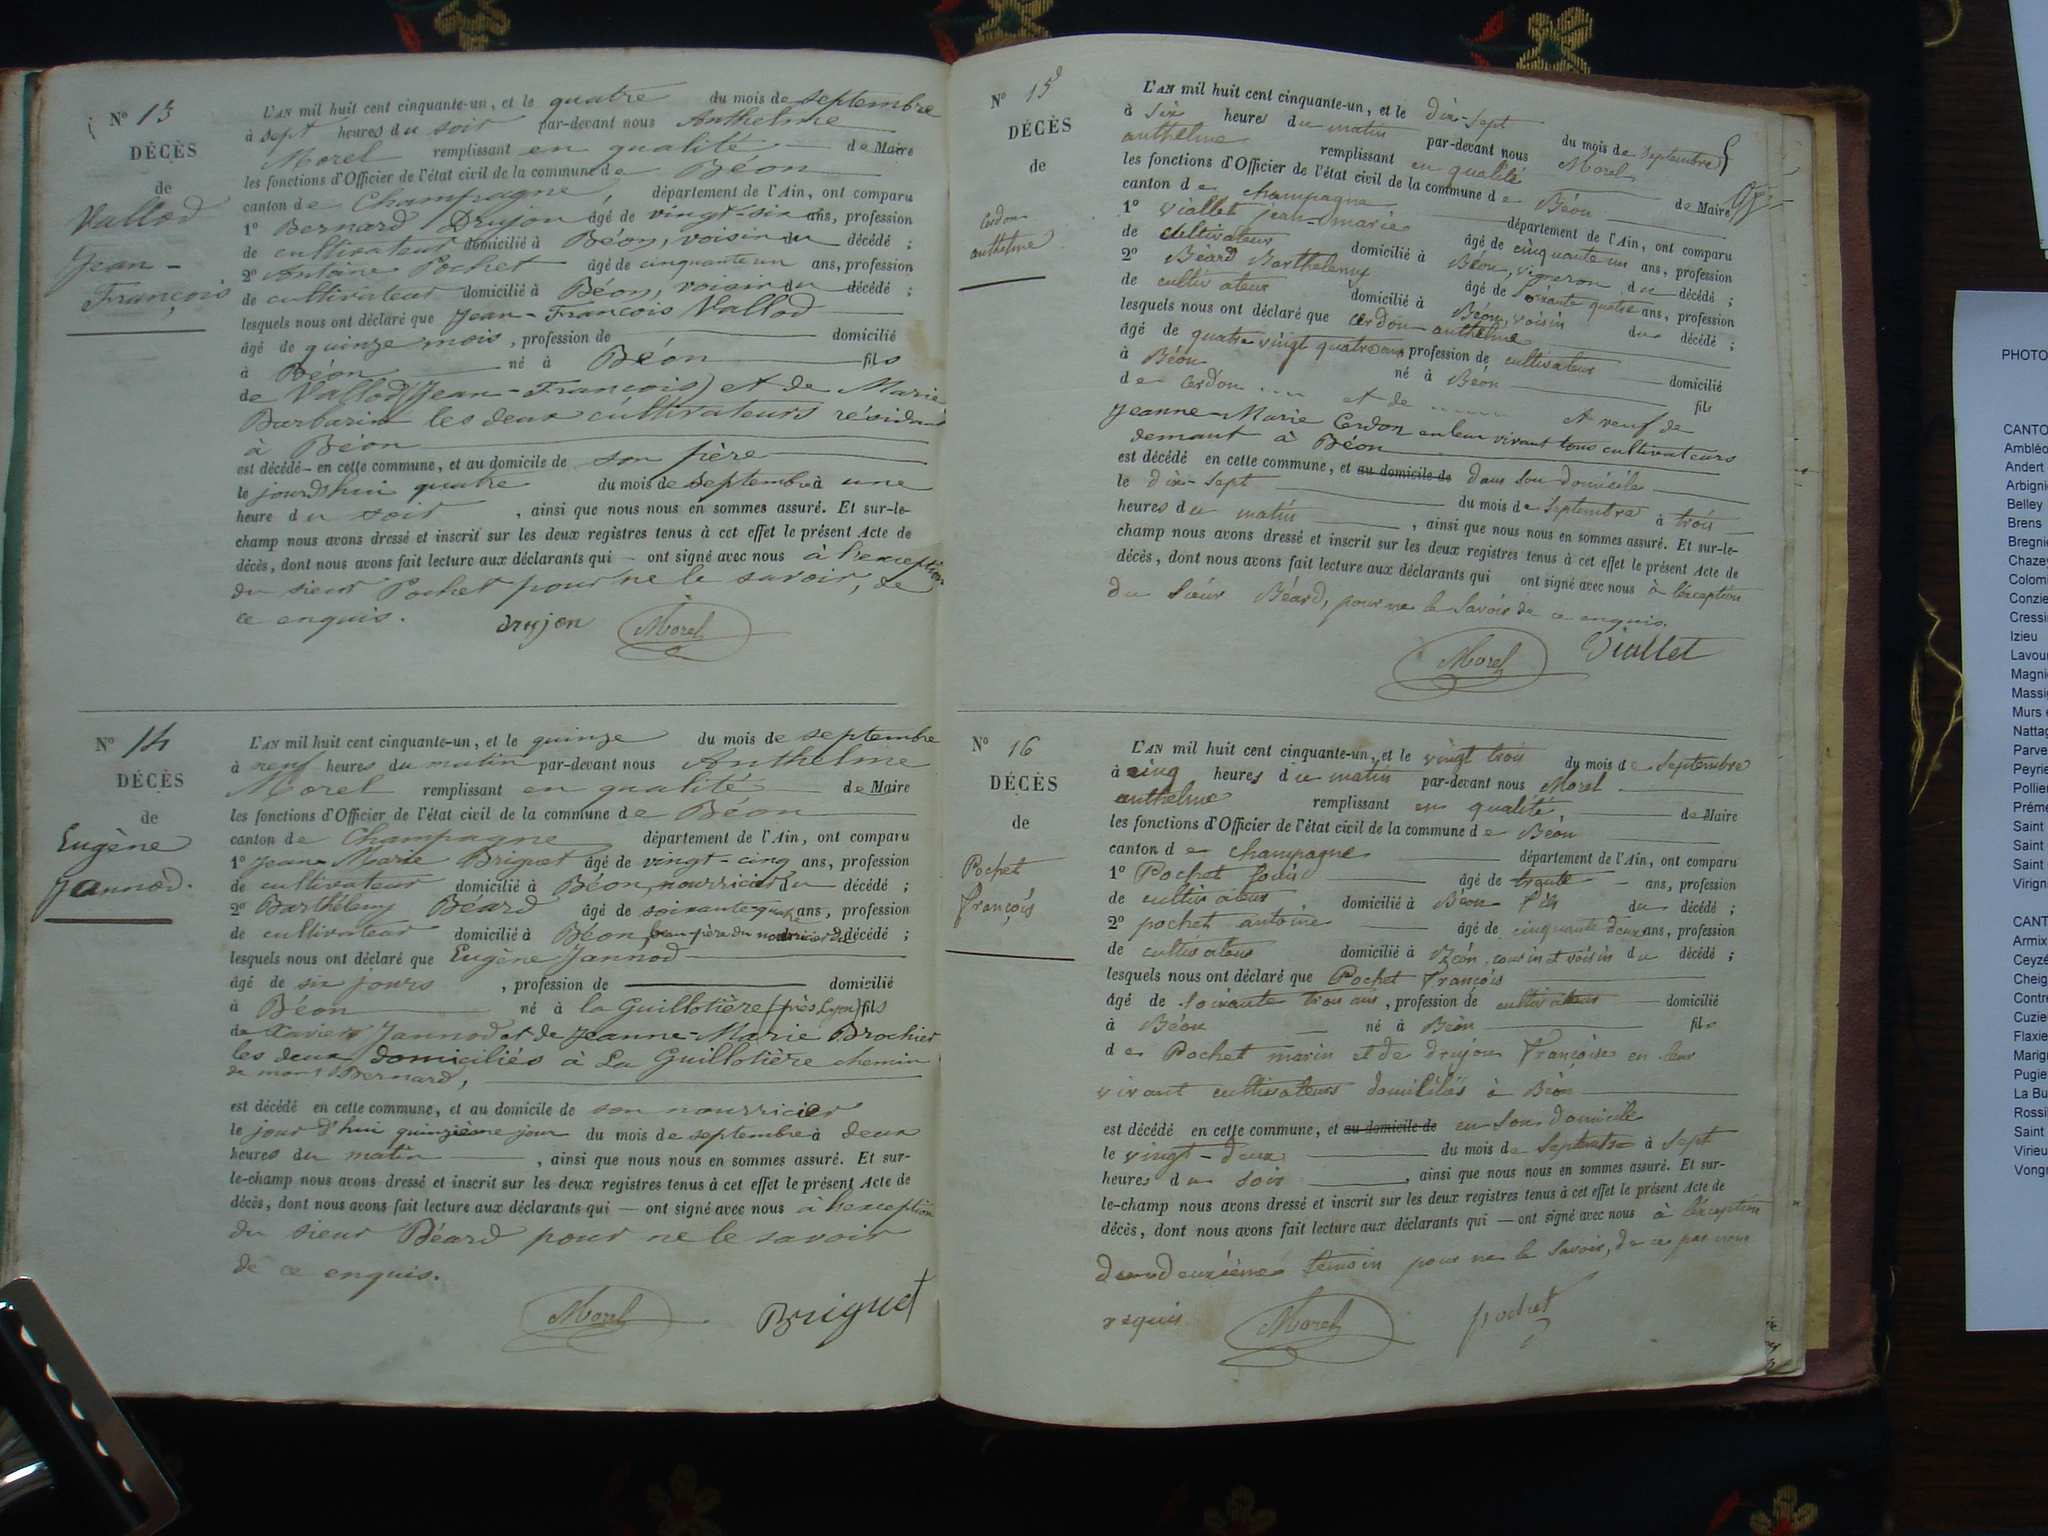 N° 13
DÉCÈS
de
Vallod
Jean-
François
L'AN mil huit cent cinquante-un, et le quatre du mois de septembre
à sept heures du soir par-devant nous Anthelme
Morel remplissant en qualité de Maire
les fonctions d'Officier de l'état civil de la commune de Béon
canton de Champagne département de l'Ain, ont comparu
1° Bernard Drujon âgé de vingt-six ans, profession
de cultivateur domicilié à Béon, voisin du décédé ;
2° Antoine Pochet âgé de cinquante un ans, profession
de cultivateur domicilié à Béon, voisin du décédé ;
lesquels nous ont déclaré que Jean-François Vallod
âgé de quinze mois, profession de domicilié
à Béon né à Béon fils
de Vallod (Jean-François) et de Marie
Barbarin les deux cultivateurs résidant
à Béon
est décédé en cette commune, et au domicile de son père
le jourd'hui quatre du mois de septembre à une
heure du soir, ainsi que nous nous en sommes assuré. Et sur-le-
champ nous avons dressé et inscrit sur les deux registres tenus à cet effet le présent Acte de
décès, dont nous avons fait lecture aux déclarants qui ont signé avec nous à l'exception
du sieur Pochet pour ne le savoir, de
ce enquis. drujon Morel
N° 14
DÉCÈS
de
Eugène
Jannod.
L'AN mil huit cent cinquante-un, et le quinze du mois de septembre
à neuf heures du matin par-devant nous Anthelme
Morel remplissant en qualité de Maire
les fonctions d'Officier de l'état civil de la commune de Béon
canton de Champagne département de l'Ain, ont comparu
1° Jean-Marie Briguet âgé de vingt-cinq ans, profession
de cultivateur domicilié à Béon, nourricier du décédé ;
2° Barthélemy Béard âgé de soixante-quatre ans, profession
de cultivateur domicilié à Béon, beau-père du nourricier du décédé ;
lesquels nous ont déclaré que Eugène Jannod
âgé de six jours, profession de domicilié
à Béon né à la Guillotière (près Lyon) fils
de Xavier Jannod et de Jeanne-Marie Brochier
les deux domiciliés à La Guillotière chemin
de mont Bernard,
est décédé en cette commune, et au domicile de son nourricier
le jour d'hui quinzième jour du mois de septembre à deux
heures du matin, ainsi que nous nous en sommes assuré. Et sur-
le-champ nous avons dressé et inscrit sur les deux registres tenus à cet effet le présent Acte de
décès, dont nous avons fait lecture aux déclarants qui ont signé avec nous à l'exception
du sieur Béard pour ne le savoir
de ce enquis.
Morel Briguet
N° 15
DÉCÈS
de
Cerdon
anthelme
L'AN mil huit cent cinquante-un, et le dix-sept du mois de septembre
à six heures du matin par-devant nous Morel
anthelme remplissant en qualité de Maire
les fonctions d'Officier de l'état civil de la commune de Béon
canton de champagne département de l'Ain, ont comparu
1° Viallet jean-marie âgé de cinquante un ans, profession
de cultivateur domicilié à Béon, vigneron du décédé ;
2° Béard Barthelemy âgé de soixante quatre ans, profession
de cultivateur domicilié à Béon, voisin du décédé ;
lesquels nous ont déclaré que cerdon anthelme
âgé de quatre vingt quatre ans profession de cultivateur domicilié
à Béon né à Béon fils
de cerdon .... et de ........ et veuf de
Jeanne-Marie Cerdon en leur vivant tous cultivateurs
demant à Béon
est décédé en cette commune, et au domicile de dans son domicile
le dix-sept du mois de septembre à trois
heures du matin, ainsi que nous nous en sommes assuré. Et sur-le-
champ nous avons dressé et inscrit sur les deux registres tenus à cet effet le présent Acte de
décès, dont nous avons fait lecture aux déclarants qui ont signé avec nous à l'exception
du sieur Béard, pour ne le savoir de ce enquis.
Morel Viallet
N° 16
DÉCÈS
de
Pochet
françois
L'AN mil huit cent cinquante-un, et le vingt trois du mois de septembre
à cinq heures du matin par-devant nous Morel
anthelme remplissant en qualité de Maire
les fonctions d'Officier de l'état civil de la commune de Béon
canton de champagne département de l'Ain, ont comparu
1° Pochet Louis âgé de trente ans, profession
de cultivateur domicilié à Béon fils du décédé ;
2° pochet antoine âgé de cinquante deux ans, profession
de cultivateur domicilié à Béon, cousin et voisin du décédé ;
lesquels nous ont déclaré que Pochet françois
âgé de soixante trois ans, profession de cultivateur domicilié
à Béon né à Béon fils
de Pochet marin et de drujon françoise en leur
vivant cultivateurs domiciliés à Béon
est décédé en cette commune, et au domicile de en son domicile
le vingt-deux du mois de septembre à sept
heures du soir, ainsi que nous nous en sommes assuré. Et sur-
le-champ nous avons dressé et inscrit sur les deux registres tenus à cet effet le présent Acte de
décès, dont nous avons fait lecture aux déclarants qui ont signé avec nous à l'exception
du deuxième temoin pour ne le savoir, de ce par nous
requis Morel pochet
PHOTO
CANTO
Ambléo
Andert
Arbigni
Belley
Brens
Bregni
Chazey
Colom
Conzie
Cressi
Izieu
Lavou
Magni
Massi
Murs
Nattag
Parve
Peyrie
Pollie
Préme
Saint
Saint
Saint
Virign
CANT
Armix
Ceyzé
Cheig
Contr
Cuzie
Flaxie
Marig
Pugie
La Bu
Rossi
Saint
Virieu
Vong